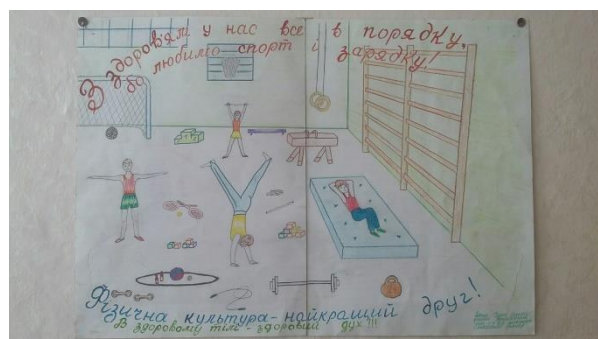 З здоров'ям у нас все в порядку,
бо любимо спорт й зарядку!
Фізична культура-найкращий друг!
В здоровому тілі-здоровий дух!!!